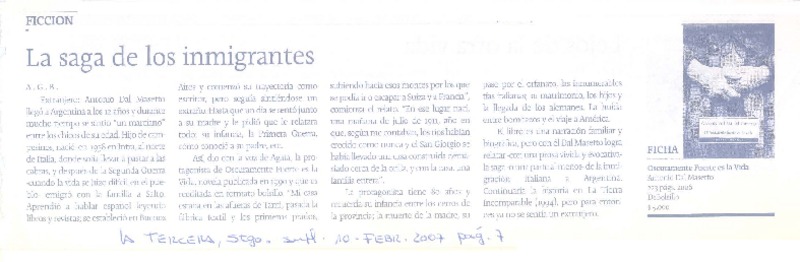 FICCION
La saga de los inmigrantes
A. G. B.
Extranjero: Antonio Dal Masetto
llegó a Argentina a los 12 años y durante
mucho tiempo se sintió "un marciano"
entre los chicos de su edad. Hijo de cam-
pesinos, nació en 1938 en Intra, al norte
de Italia, donde solía llevar a pastar a las
cabras, y después de la Segunda Guerra
-cuando la vida se hizo difícil en el pue-
blo- emigró con la familia a Salto.
Aprendió a hablar español leyendo
libros y revistas; se estableció en Buenos
Aires y comenzó su trayectoria como
escritor, pero seguía sintiéndose un
extraño. Hasta que un día se sentó junto
a su madre y le pidió que le relatara
todo: su infancia, la Primera Guerra,
cómo conoció a su padre, etc.
Así, dio con la voz de Agata, la pro-
tagonista de Oscuramente Fuerte es la
Vida, novela publicada en 1990 y que es
reeditada en formato bolsillo. "Mi casa
estaba en las afueras de Tarni, pasada la
fábrica textil y los primeros prados,
subiendo hacia esos montes por los que
se podía ir a escapar a Suiza y a Francia",
comienza el relato. "En ese lugar nací,
una mañana de julio de 1911, año en
que, según me contaban, los ríos habían
crecido como nunca y el San Giorgio se
había llevado una construcción demasiado
cerca de la orilla, y con la casa, una
familia entera".
La protagonista tiene 80 años y
recuerda su infancia entre los cerros de
la provincia; la muerte de la madre, su
paso por el orfanato, las innumerables
tías italianas; su matrimonio, los hijos y
la llegada de los alemanes. La huida
entre bombardeos y el viaje a América.
El libro es una narración familiar y
biográfica, pero con él Dal Masetto logra
relatar -con una prosa vívida y evocativa-
la saga en
de la inmi-
gración italiana a Argentina.
Continuaría la historia en La Tierra
Incomparable (1994), pero para enton-
ces ya no se sentía un extranjero.
FICHA
Oscuramente Fuerte es la Vida
Antonio Dal Masetto
273 pág., 2006
DeBolsillo
LA TERCERA, Stgo. supl. 10-FEBR. 2007 pág. 7